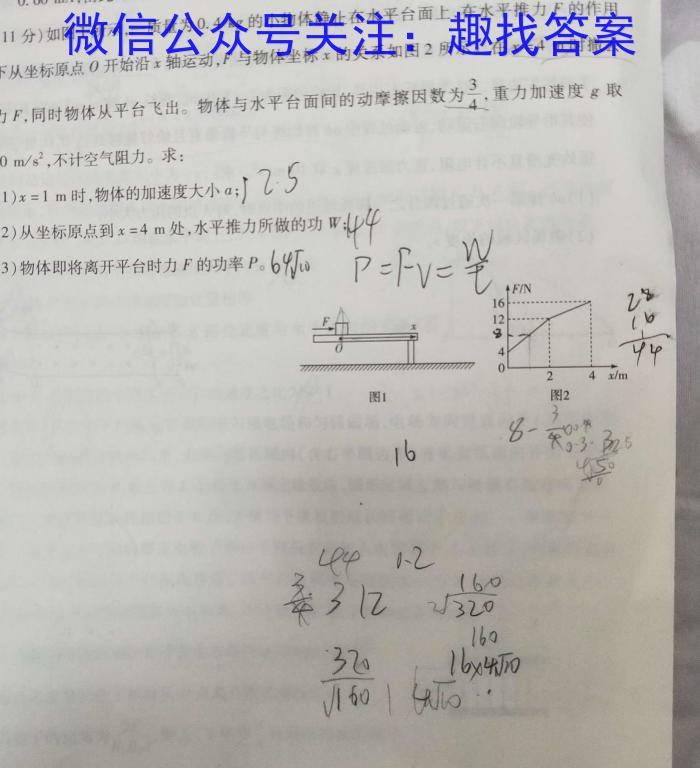 11 分)如图 质量为0.4 kg的小物体静止在水平台面上,在水平推力 F 的作用
微信公众号关注：趣找答案
下从坐标原点 O 开始沿 x 轴运动,F 与物体坐标 x 的关系如图 2 所 在 x=4 m 时撤
力 F,同时物体从平台飞出。物体与水平台面间的动摩擦因数为 3/4,重力加速度 g 取
0 m/s²,不计空气阻力。求:
1)x=1 m 时,物体的加速度大小 a; 12.5
2)从坐标原点到 x=4 m 处,水平推力所做的功 W; 44
3)物体即将离开平台时力 F 的功率 P。 64√10
P=Fv=W/t
F
O
x
图1
F/N
16
12
8
4
0
2
4
x/m
图2
28
16
44
8-
16
44 1.2
3 12
160
2√320
160
320
√160
16×4√10
4√10